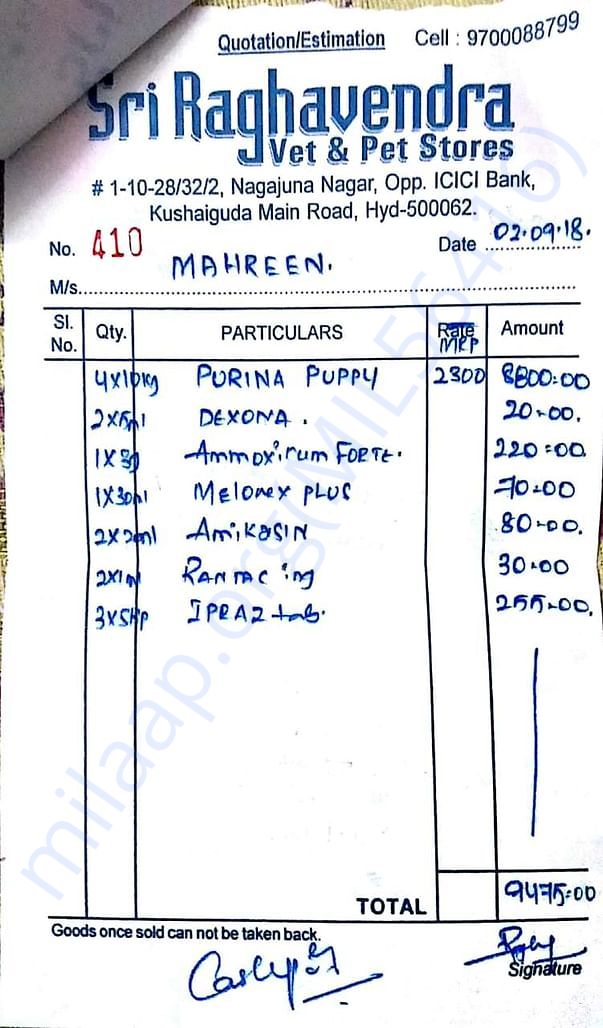 Quotation/Estimation Cell : 9700088799
Sri Raghavendra
Vet & Pet Stores
# 1-10-28/32/2, Nagajuna Nagar, Opp. ICICI Bank,
Kushaiguda Main Road, Hyd-500062.
No. 410 Date 02.09.18.
M/s. MAHREEN.
Sl. No. Qty. PARTICULARS Rate MRP Amount
4x10kg PURINA PUPPY 2300 8800=00
2x5ml DEXONA. 20-00.
1x3g Ammoxirum FORTE. 220=00.
1x30ml MELONEX PLUS 70=00
2x2ml AMIKASIN 80-00.
2x1ml RANTAC ing 30-00
3x5 IPRAZ tab. 255-00.
TOTAL 9475=00
Goods once sold can not be taken back.
Signature
milaap.org(MIL56416)